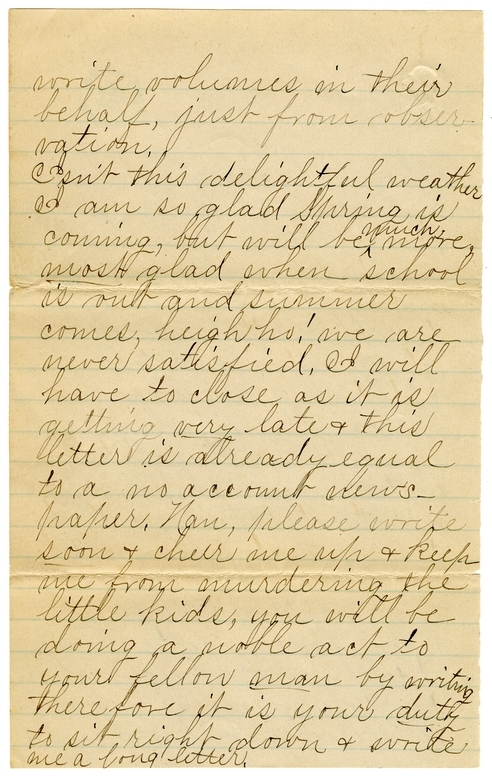 write volumes in their
behalf, just from obser-
vation.
Isn't this delightful weather
I am so glad Spring is
coming, but will be much more,
most glad when school
is out and summer
comes, heigh ho! we are
never satisfied. I will
have to close as it is
getting very late & this
letter is already equal
to a no account news-
paper. Nan, please write
soon & cheer me up & keep
me from murdering the
little kids, you will be
doing a noble act to
your fellow man by writing
therefore it is your duty
to sit right down & write
me a long letter.